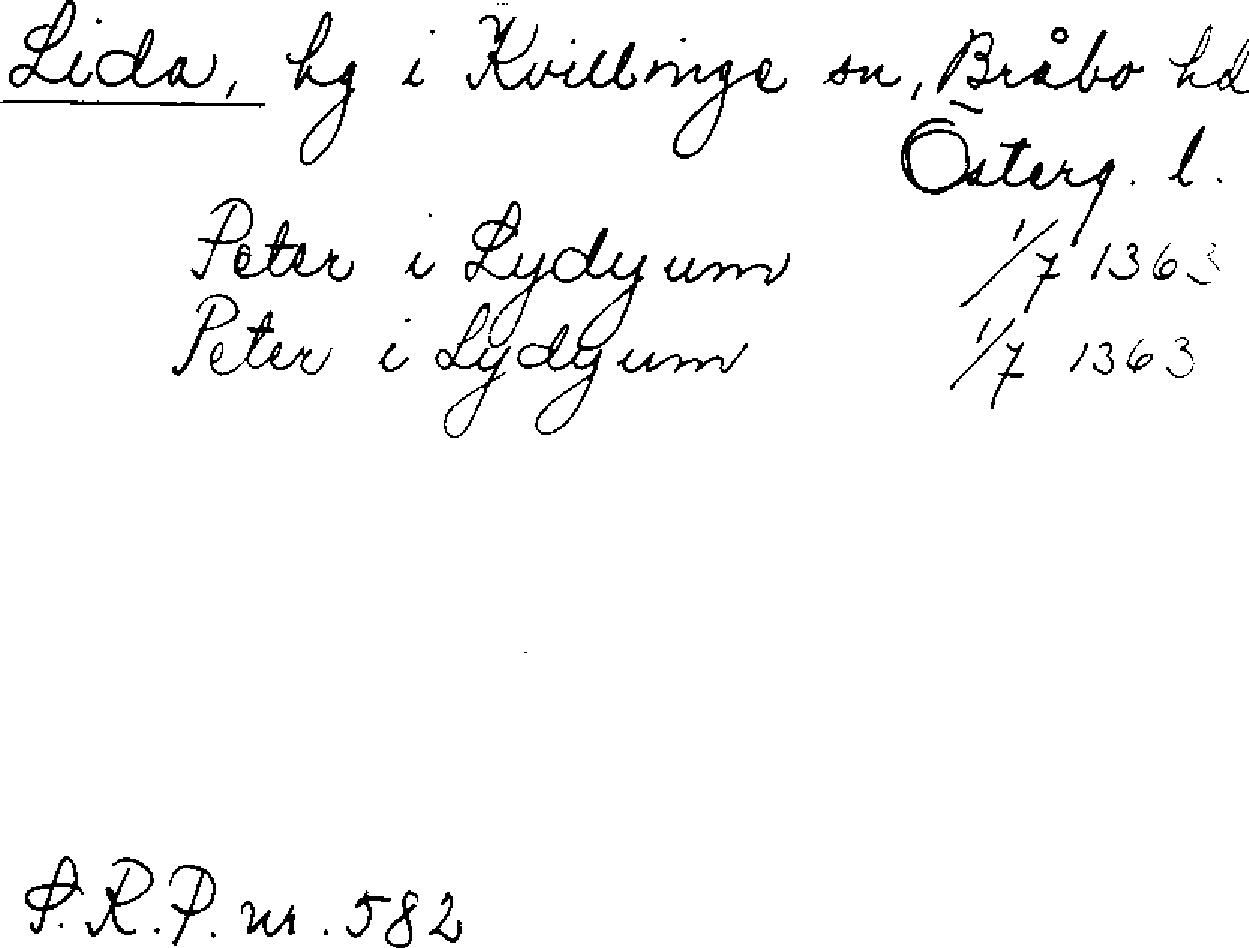 Lida, hg i Kvillinge sn, Bråbo hd
Österg. l.
Peter i Lydyum 1/7 1363
Peter i Lydyum 1/7 1363
S.R.P. nr. 582